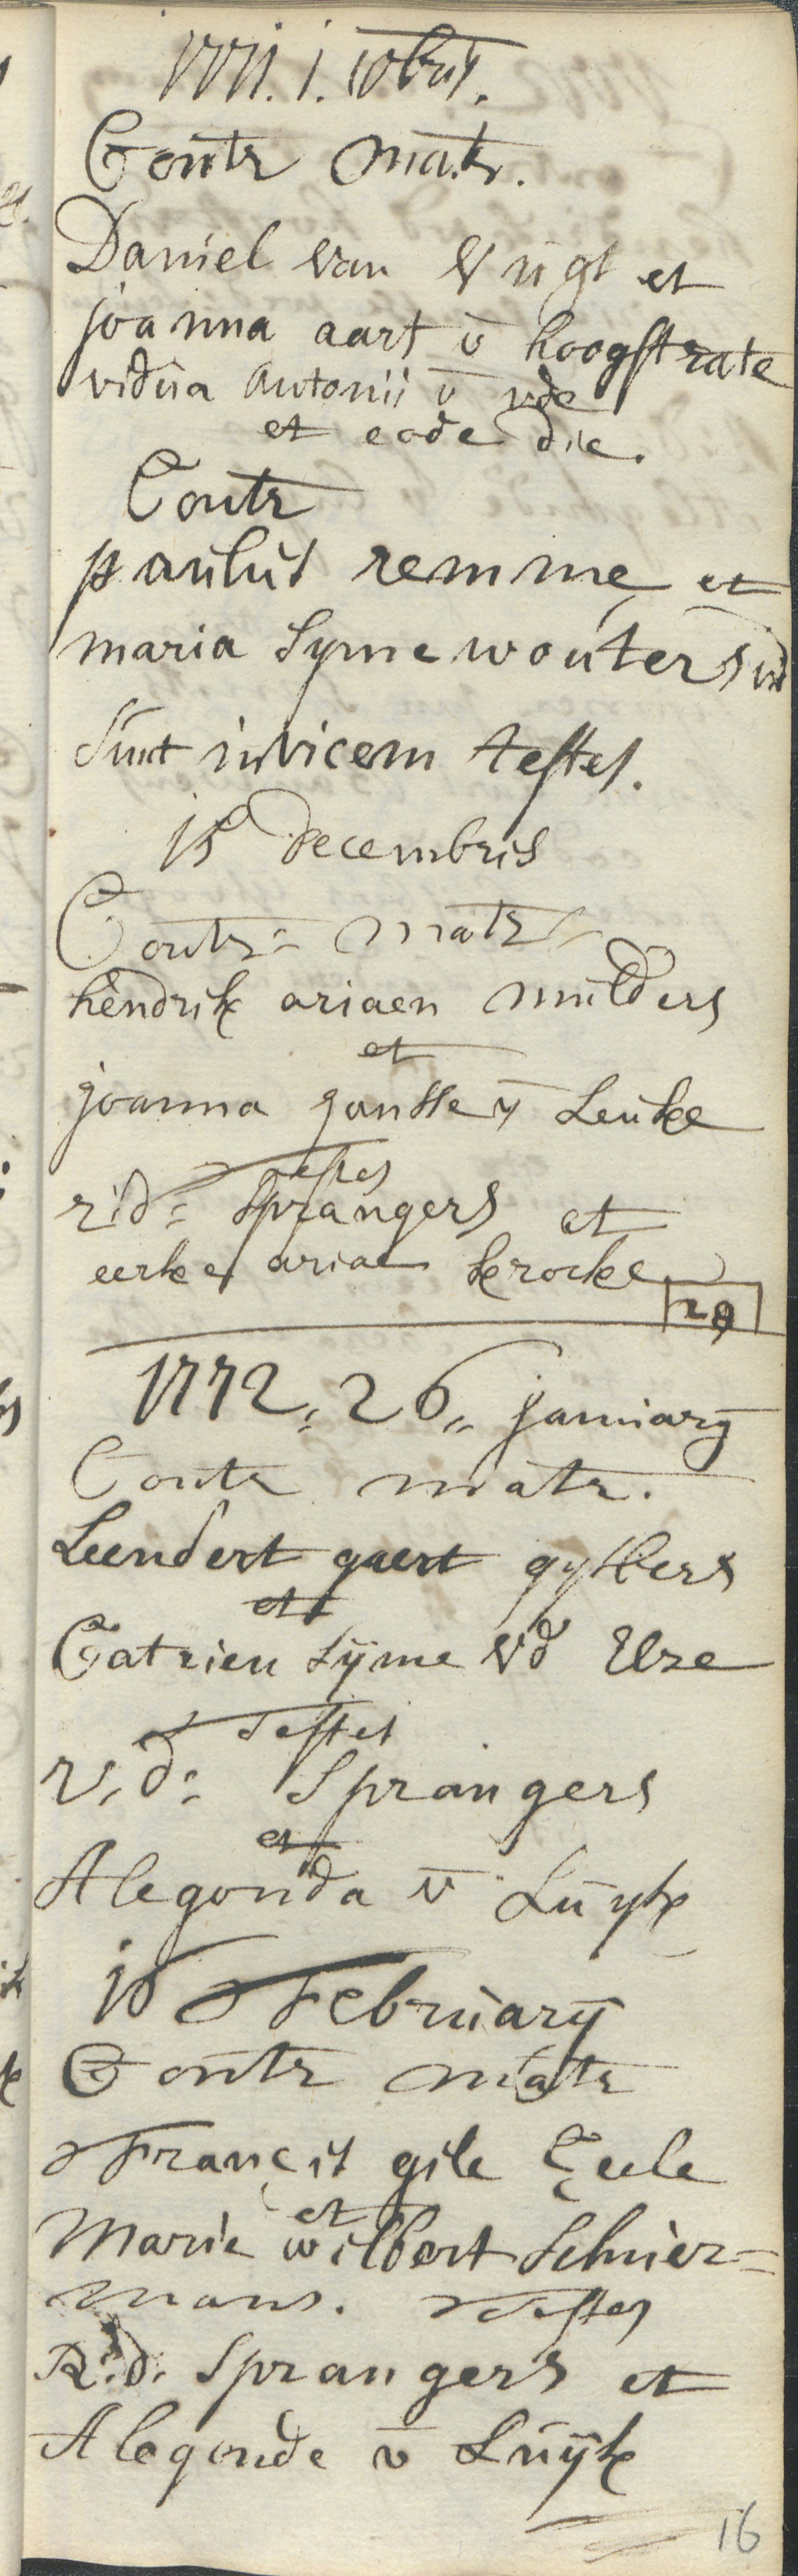 1771. 1. 10bris.
Contr matr.
Daniel van Vugt et
joanna aart v̄ hoogstrate
vidua Antonii v̄ vde
et eode die.
Contr
paulus remme et
maria Syme wouters vd
Sunt invicem testes.
15 decembris
Contr: matr
hendrik ariaen mulders
et
joanna jansse v̄ Leuke
testes
r:d: Sprangers et
eerke ariae krocke
29
1772, 26,, january
Contr matr.
Leendert geert gysbers
et
Catrien Syme vd Elze
testes
r,d: Sprangers
et
Alegonda v̄ Luyk
10 February
Contr matr
Francis gile Ceele
et
Marie wilbert Schier=
mans. testes
R:d: Sprangers et
Alegonde v̄ Luyk
16